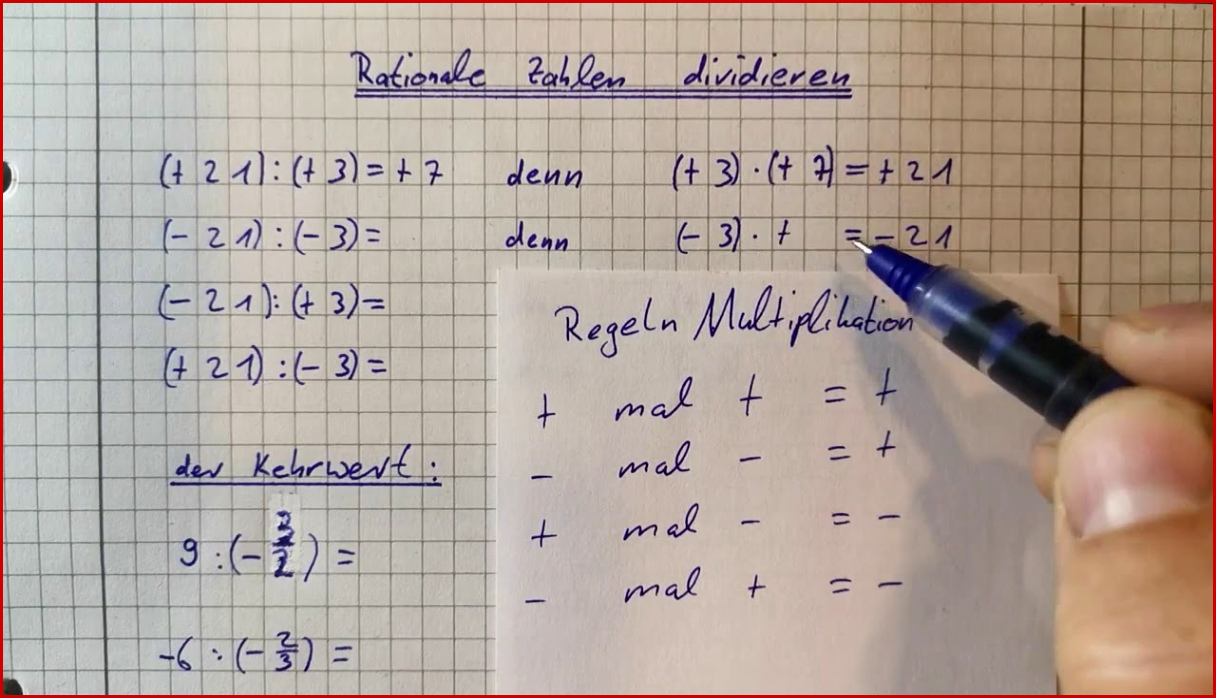 Rationale Zahlen dividieren
(+ 21) : (+ 3) = + 7 denn (+ 3) · (+ 7) = + 21
(- 21) : (- 3) = denn (- 3) · + = - 21
(- 21) : (+ 3) =
(+ 21) : (- 3) =
Regeln Multiplikation
+ mal + = +
- mal - = +
+ mal - = -
- mal + = -
der Kehrwert :
9 : (- 3/2) =
-6 : (- 2/3) =